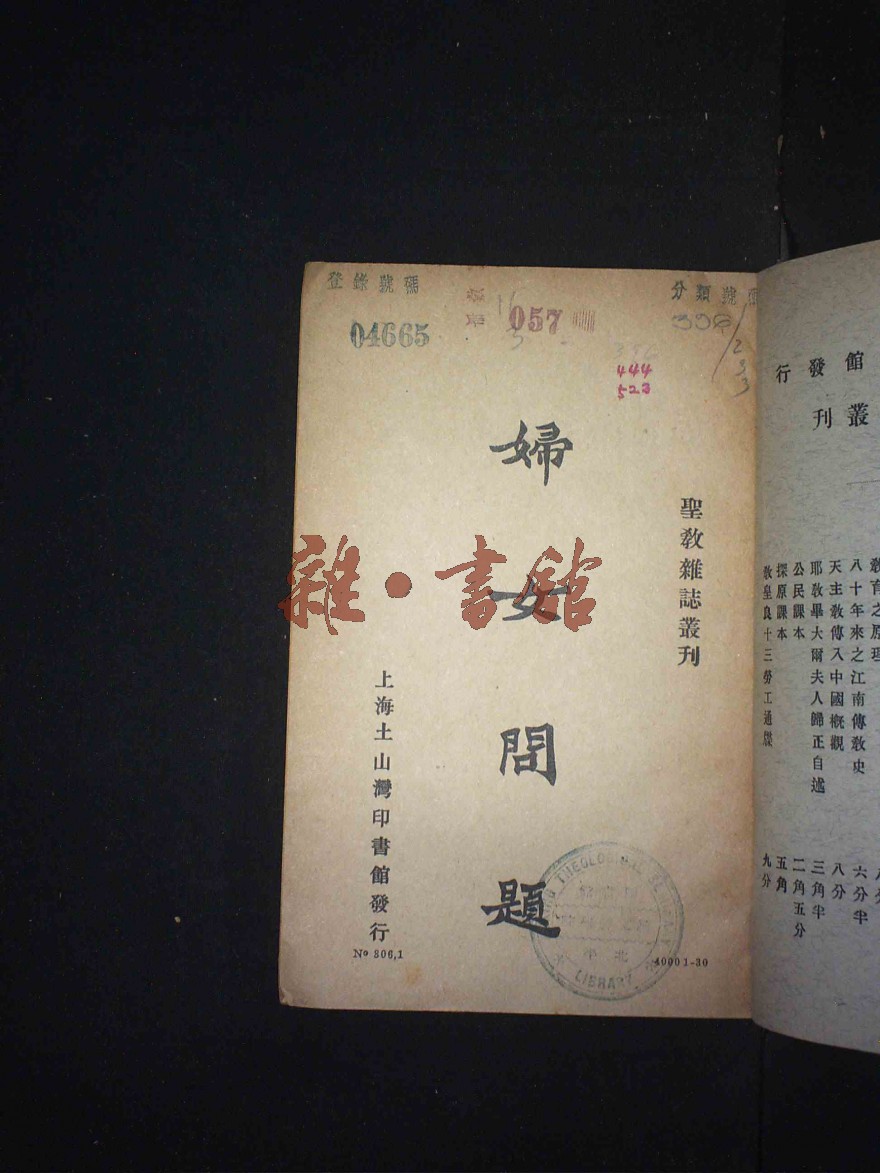 登錄號碼
04665
057
分類號
444
523
聖教雜誌叢刊
婦女問題
上海土山灣印書館發行
No 806,1
4000 1-30
THEOLOGICAL
LIBRARY
雜·書館
館發行
叢刊
教育之原理
八十年來之江南傳教史 六分半
天主教傳入中國概觀 八分
耶教畢大爾夫人歸正自述 三角半
公民課本 二角五分
探原課本 五角
教皇良十三勞工通牒 九分